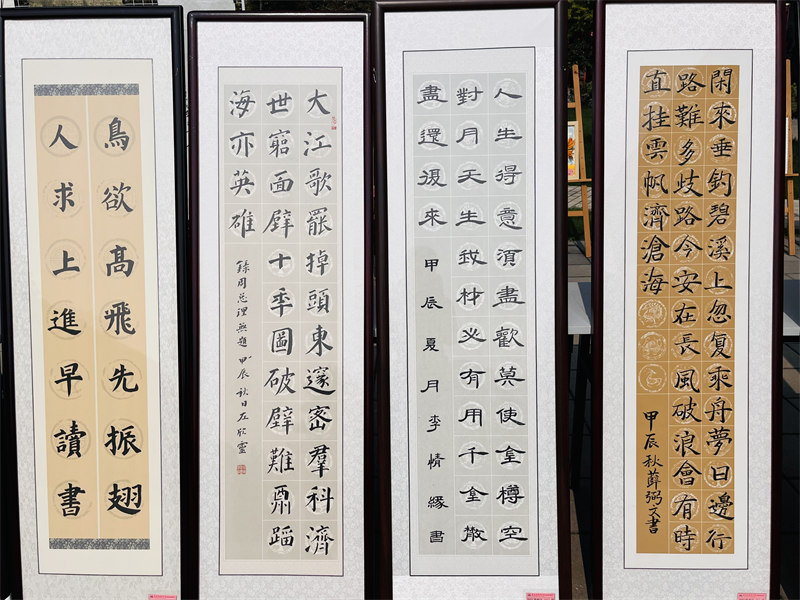 鳥欲高飛先振翅
人求上進早讀書
大江歌罷掉頭東邃密羣科濟
世窮面壁十年圖破壁難酬蹈
海亦英雄
錄周总理無題甲辰秋日左
人生得意須盡歡莫使金樽空
對月天生我材必有用千金散
盡還復來
甲辰夏月李情緣書
閑來垂釣碧溪上忽复乘舟夢日邊行
路難多歧路今安在長風破浪會有時
直挂雲帆濟滄海
甲辰秋薛弼文書